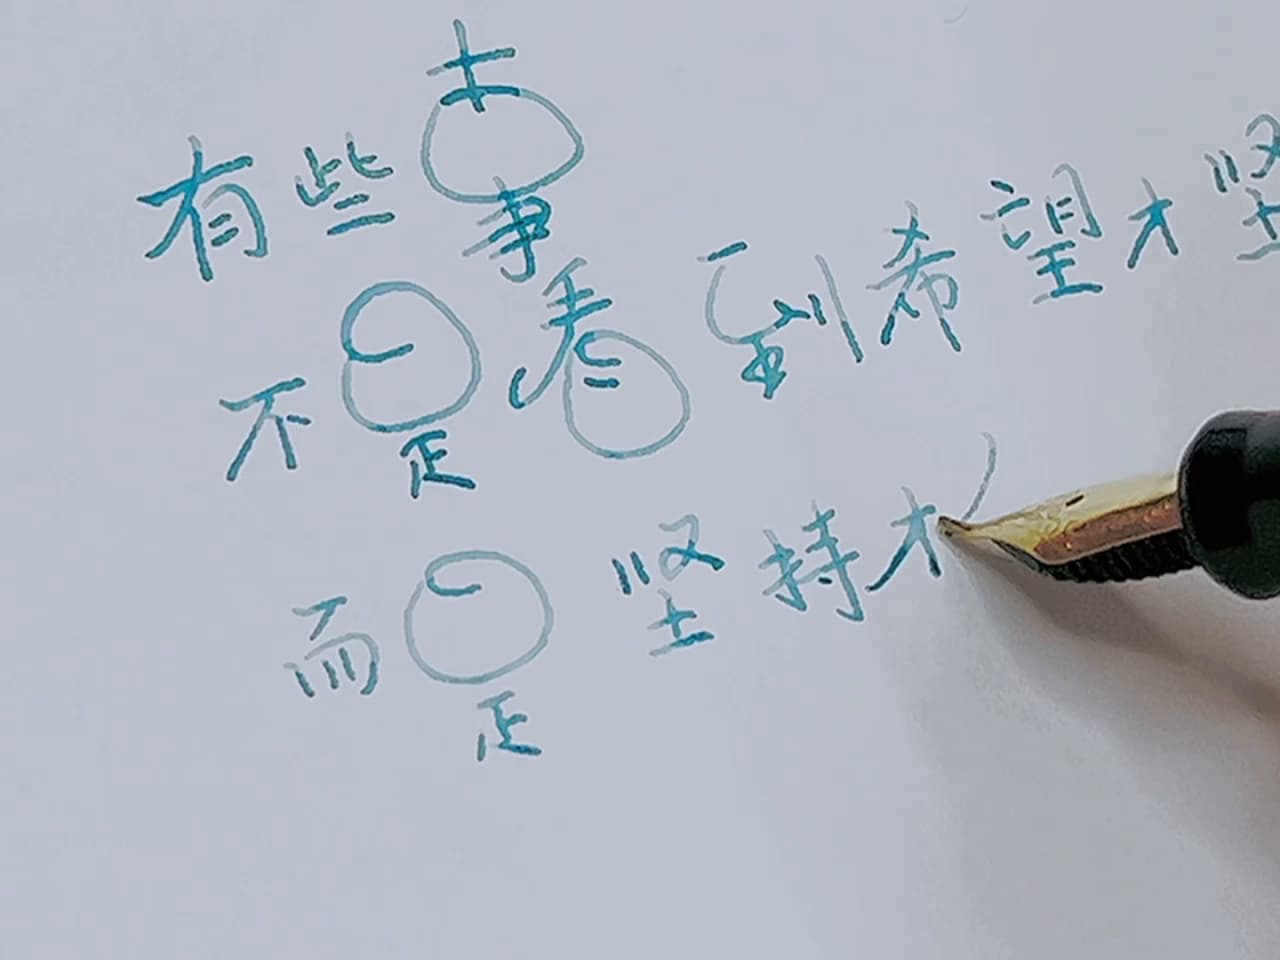 有些事
不是看到希望才坚
而是坚持才